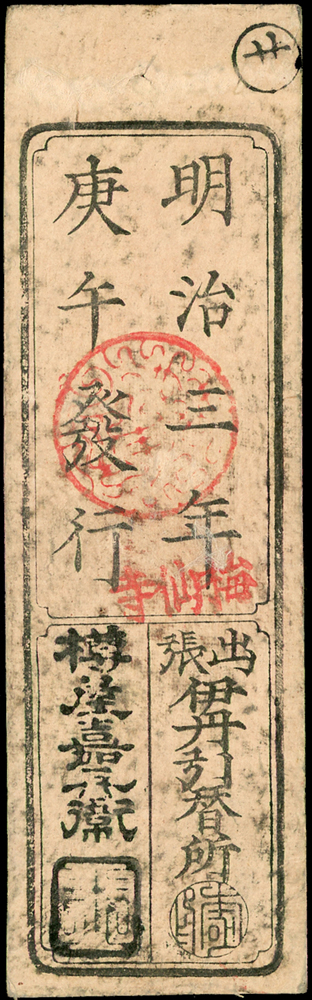 廿
明治三年
庚午發行
梅仙寺
出張
伊丹引替所
樽屋嘉兵衛